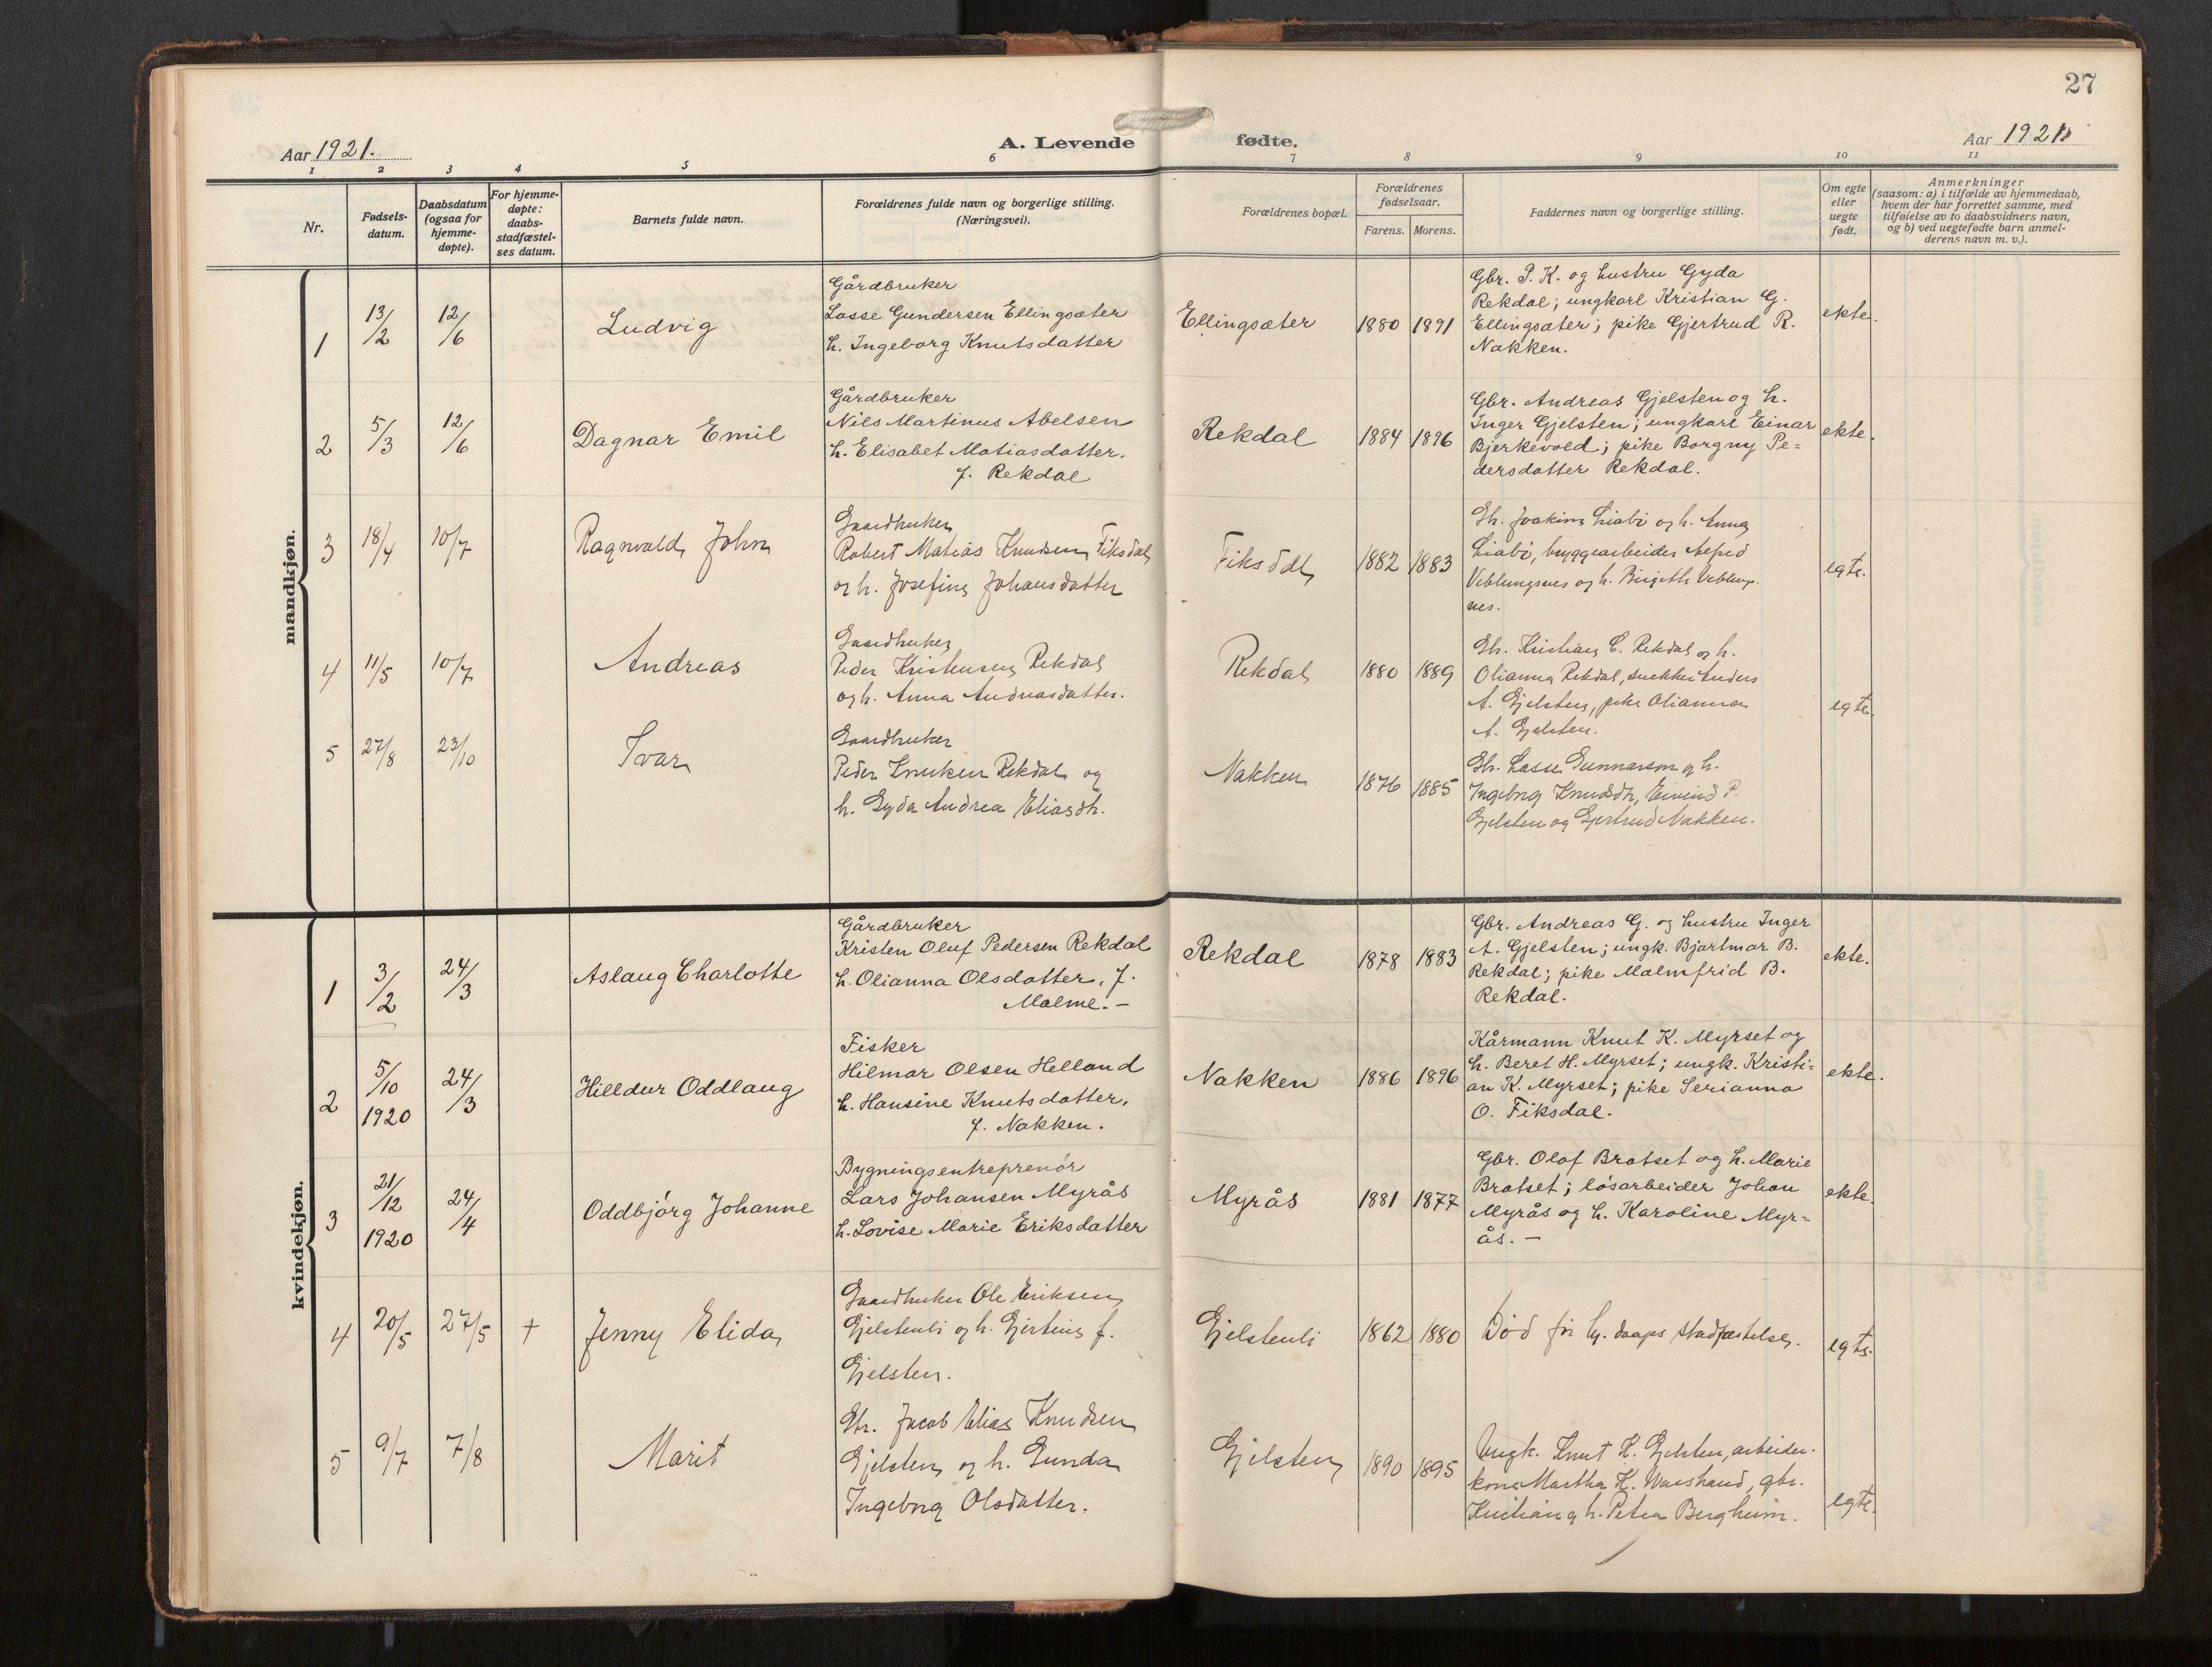 27
Aar 1921.
A. Levende
fødte.
Aar 1921
1 2 3 4 5 6 7 8 9 10 11
Nr.
Fødsels-
datum.
Daabsdatum
(ogsaa for
hjemme-
døpte).
For hjemme-
døpte:
daabs-
stadfæstel-
ses datum.
Barnets fulde navn.
Forældrenes fulde navn og borgerlige stilling.
(Næringsvei).
Forældrenes bopæl.
Forældrenes
fødselsaar.
Farens. Morens.
Faddernes navn og borgerlige stilling.
Om egte
eller
uegte
født.
Anmerkninger
(saasom: a) i tilfælde av hjemmedaab,
hvem der har forrettet samme, med
tilføielse av to daabsvidners navn,
og b) ved uegtefødte barn anmel-
derens navn m. v.).
mandkjøn.
1
13/2
12/6
Ludvig
Gårdbruker
Lasse Gundersen Ellingsæter
h. Ingeborg Knutsdatter
Ellingsæter
1880 1891
Gbr. P. K. og hustru Gyda
Rekdal; ungkarl Kristian G.
Ellingsæter; pike Gjertrud R.
Nakken.
ekte.
2
5/3
12/6
Dagnar Emil
Gårdbruker
Nils Martinus Abelsen
h. Elisabet Matiasdatter.
f. Rekdal
Rekdal
1884 1896
Gbr. Andreas Gjelsten og h.
Inger Gjelsten; ungkarl Einar
Bjerkevold; pike Borgny Pe=
dersdatter Rekdal.
ekte.
3
18/4
10/7
Ragnvald John
Gaardbruker
Robert Matias Knudsen Fiksdal
og h. Josefine Johansdatter
Fiksdal
1882 1883
Gb. Joakim Liabö og h. Anna
Liabö, bryggearbeider
Veblungsnes og h. Birgitte Veblungs-
nes.
egte.
4
11/5
10/7
Andreas
Gaardbruker
Peder Kristensen Rekdal
og h. Anna Andreasdatter.
Rekdal
1880 1889
Gb. Kristian C. Rekdal og h.
Olianna Rekdal, snekker Anders
A. Gjelsten, pike Olianna
A. Gjelsten.
egte.
5
27/8
23/10
Ivar
Gaardbruker
Peder Knutsen Rekdal og
h. Gyda Andrea Eliasdtr.
Nakken
1876 1885
Gb. Lasse Gunnarson og h.
Ingeborg Knudsdtr, Eivind P.
Gjelsten og Gjertrud Nakken.
kvindekjøn.
1
3/2
24/3
Aslaug Charlotte
Gårdbruker
Kristen Oluf Pedersen Rekdal
h. Olianna Olsdatter, f.
Malme. –
Rekdal
1878 1883
Gbr. Andreas G. og hustru Inger
A. Gjelsten; ungk. Bjartmar B.
Rekdal; pike Malmfrid B.
Rekdal.
ekte.
2
5/10
1920
24/3
Hilldur Oddlaug
Fisker
Hilmar Olsen Helland
h. Hansine Knutsdatter,
f. Nakken.
Nakken
1886 1896
Kårmann Knut K. Myrset og
h. Beret H. Myrset; ungk. Kristi=
an K. Myrset; pike Serianna
O. Fiksdal.
ekte.
3
21/12
1920
24/4
Oddbjörg Johanne
Bygningsentreprenör
Lars Johansen Myrås
h. Lovise Marie Eriksdatter
Myrås
1881 1877
Gbr. Olaf Bratset og h. Marie
Bratset; lösarbeider Johan
Myrås og h. Karoline Myr=
ås. –
ekte.
4
20/5
27/5
†
Jenny Elida
Gaardbruker Ole Eriksen
Gjelstenli og h. Gjertine f.
Gjelsten.
Gjelstenli
1862 1880
Død før hj. daaps stadfæstelse.
egte.
5
9/7
7/8
Marit
Gbr. Jacob Elias Knudsen
Gjelsten og h. Gunda
Ingeborg Olsdatter.
Gjelsten
1890 1895
Ungk. Knut K. Gjelsten, arbeider-
kone Martha K. , gbr.
Kristian og h. Petra Bergheim.
egte.